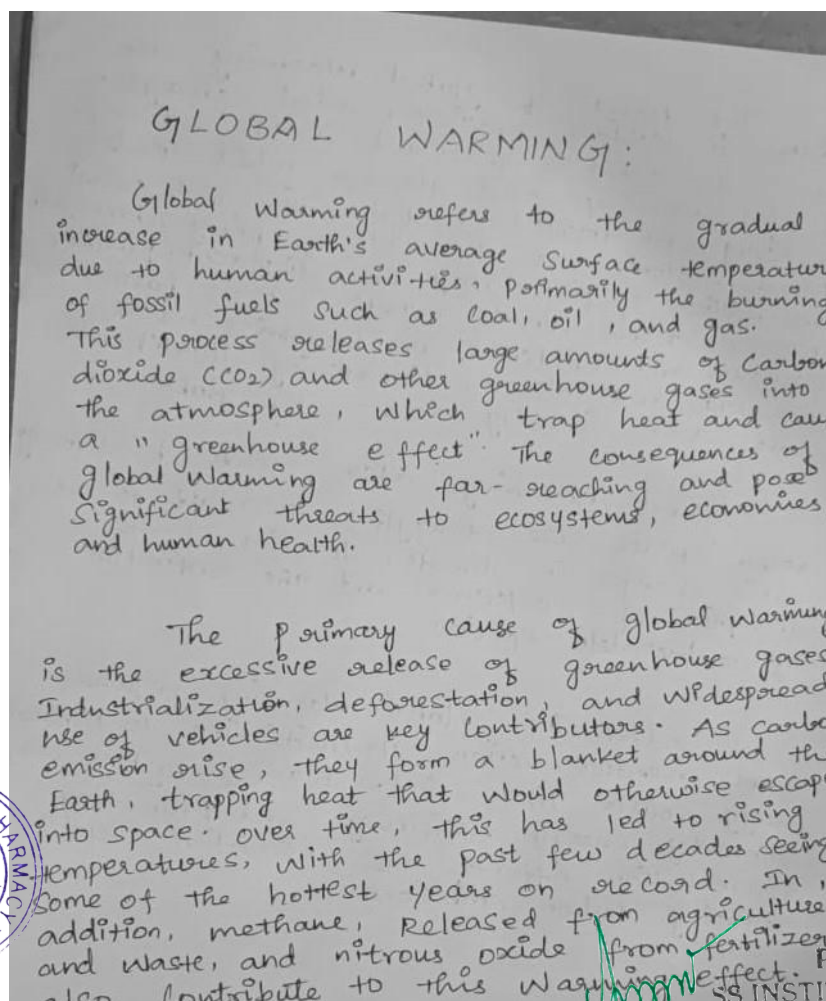 GLOBAL WARMING:
Global Warming refers to the gradual
increase in Earth's average Surface temperatur
due to human activities, primarily the burning
of fossil fuels such as Coal, oil, and gas.
This process releases large amounts of Carbon
dioxide (CO2) and other greenhouse gases into
the atmosphere, which trap heat and cau
a "greenhouse effect". The consequences of
global Warming are far-reaching and pose
significant threats to ecosystems, economies
and human health.
The primary cause of global warming
is the excessive release of greenhouse gases
Industrialization, deforestation, and widespread
use of vehicles are key Contributors. As carbo
emission rise, they form a blanket around th
Earth, trapping heat that would otherwise escap
into space. over time, this has led to rising
temperatures, with the past few decades seeing
Some of the hottest years on record. In
addition, methane, Released from agriculture
and waste, and nitrous oxide from fertilizer
also Contribute to this Warming effect.
HARMACY
SS INSTI